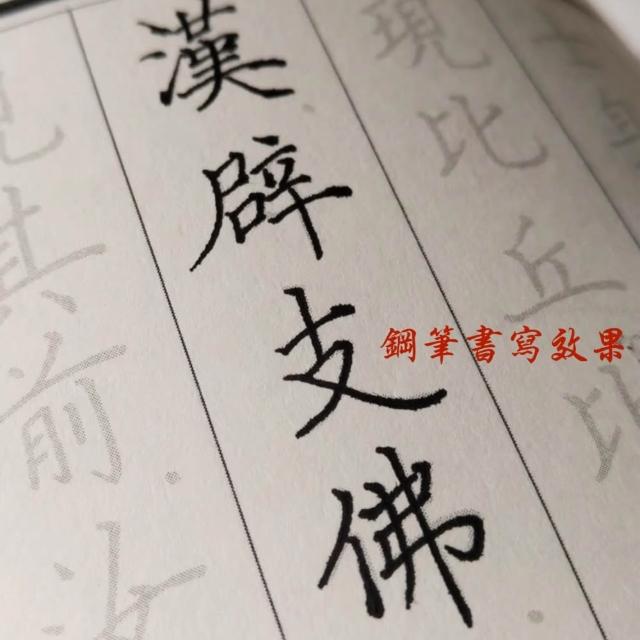 現比丘比
漢辟支佛
見其前汝
鋼筆書寫效果